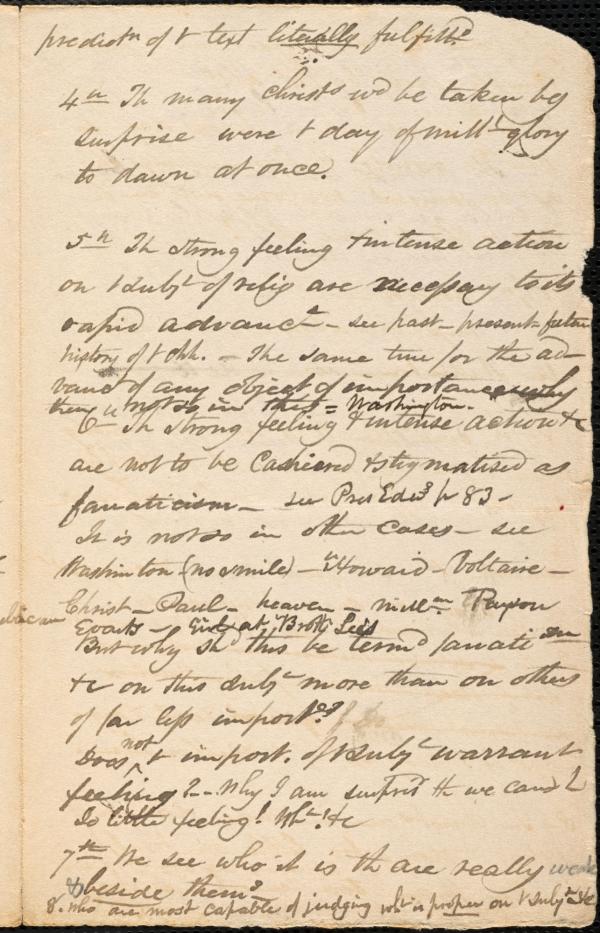 predictn of t text literally fulfilld
4th Th many Christs wd be taken by
surprise were t day of millł glory
to dawn at once.
5th Th strong feeling & intense action
on t subjt of relig are necessary to its
rapid advanct - see past - present - future
history of t chh. - The same true for the ad-
vanct of any object of importance why
then is not so in this = Washington.
6th Th strong feeling & intense action &c
are not to be & stygmatised as
fanaticism - see Pres Edws p 83 -
It is not so in other cases - see
Washington (no smile) - Howard - Voltaire -
Christ - Paul - heaven - millnm Payson
Evarts - Broth Lee's
But why shd this be termd fanaticism
&c on this subjt more than on others
of far less import?
Does not t import. of t subjt warrant
feeling? - Why I am surprisd th we can
so little feeling! Wht! &c
7th We see who it is th are really weak
& beside thems
8. who are most capable of judging wht is proper on t subjt &c